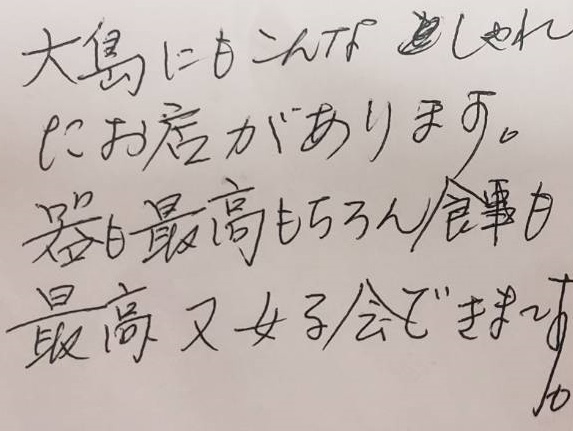 大島にもこんなおしゃれ
にお店があります。
器も最高もちろん食事も
最高又女子会できます。